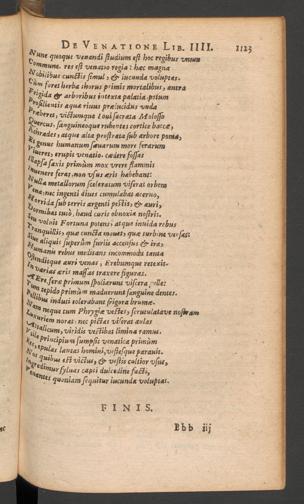 DE VENATIONE LIB. IIII. 1123
Nunc quoque venandi studium est hoc regibus vnum
Commune. res est venatio regia: hæc magna
Nobilibus cunctis simul, & iucunda voluptas.
Cùm foret herba thorus primis mortalibus, antra
Frigida & arboribus intexta palatia: potum
Præsilientis aquæ riuus præscindus vnda
Præberet, victumque Ioui sacrata Molosso
Quercus. sanguineoque rubentes cortice baccæ,
Athrades, atque alta prostrata sub arbore poma,
Et genus humanum sæuarum more ferarum
Viueret, erupit venatio. cædere fossas
Elapsa saxis primùm mox vrere flammis
Inuenere feras. non vsus æris habebant:
Nulla metallorum sceleratum viscera orbem
Pœna: nec ingenti diues cumulabat aceruo,
Horrida sub terris argenti pestis, & auri,
Dormibas tutò, haud curis obnoxia nostris.
Seu voluit Fortuna potens: atque inuida rebus
Tranquillis, quæ cuncta mouet: quæ turbine versat:
Siue aliquis superûm furiis accensus & ira:
Humanis rebus melisans incommoda tanta
Ostendisque auri venas, Erebumque retexit.
In varias æris massas traxere figuras.
Aëre, fera primum spoliarunt viscera
Tum tepido primùm maduerunt sanguine dentes.
Pellibus induti tolerabant frigora brumæ.
Nam neque tum Phrygiæ vestes, scrutulatave nostram
Luxuriem noras: nec pictas viseras aulas
Attalicum, viridis vestibat limina ramus.
Vitæ principium sumpsit venatica primùm
Res, epulas lautas homini, vestesque parauit.
His quibus est victus, & vestis cultior vsus,
Ingredimur syluas capti dulcedine facti,
Venantes quoniam sequitur iucunda voluptas.
FINIS.
Bbb iij